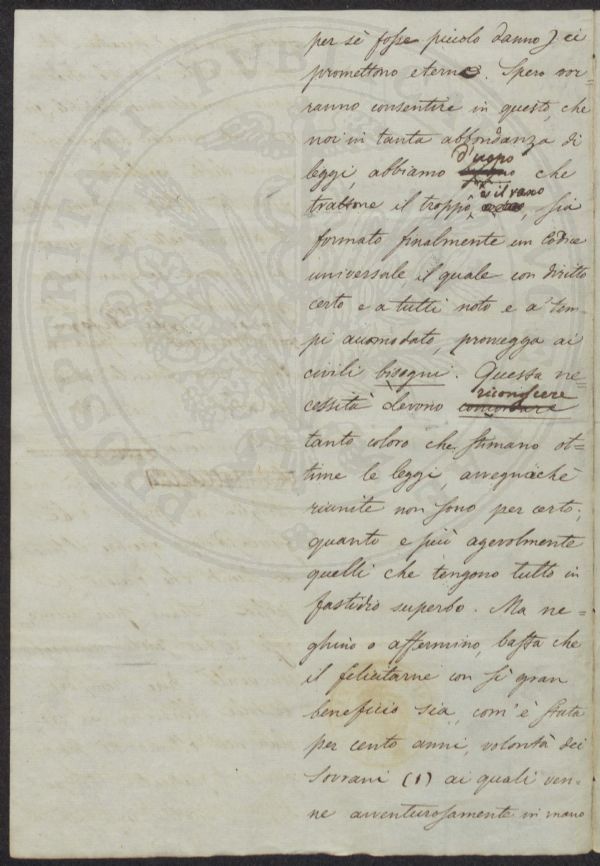 per sè fosse piccolo danno) ci
promettono eterne. Spero vor-
ranno consentire in questo, che
noi in tanta abbondanza di
leggi, abbiamo d'uopo che
trattone il troppo, e il vano, sia
formato finalmente un Codice
universale il quale con diritto
certo e a tutti noto e a' tem-
pi accomodato, provvegga ai
civili bisogni. Questa ne-
cessità devono riconoscere
tanto coloro che stimano ot-
time le leggi, avvegnachè
riunite non sono per certo;
quanto e più agevolmente
quelli che tengono tutto in
fastidio superbo. Ma ne-
ghino o affermino, basta che
il felicitarne con sì gran
beneficio sia, com'è stata
per cento anni, volontà dei
Sovrani (1) ai quali ven-
ne avventurosamente in mano
PROSPERI LATI PUB